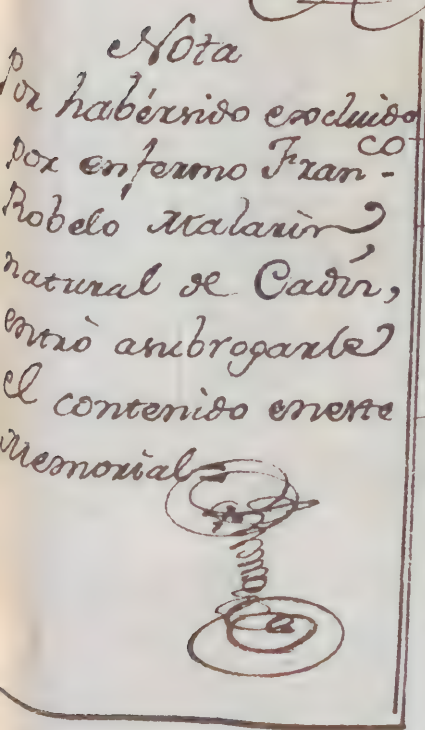 Nota
Por habérsido excluido
por enfermo Fran-co
Robelo Malarin
natural de Cadiz,
entrò asubrogarle
el contenido eneste
Memorial